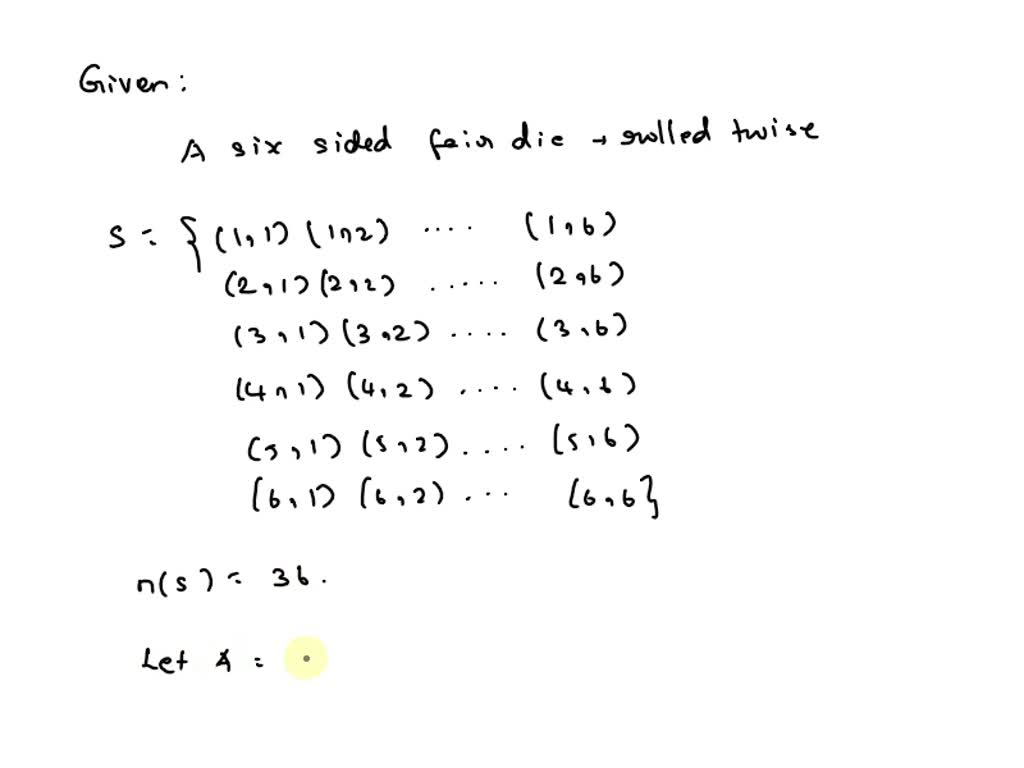 Given:
A six sided fair die → rolled twise
S = { (1,1) (1,2) .... (1,6)
(2,1) (2,2) ..... (2,6)
(3,1) (3,2) .... (3,6)
(4,1) (4,2) .... (4,6)
(5,1) (5,2) .... (5,6)
(6,1) (6,2) ... (6,6}
n(s) = 36.
Let A =